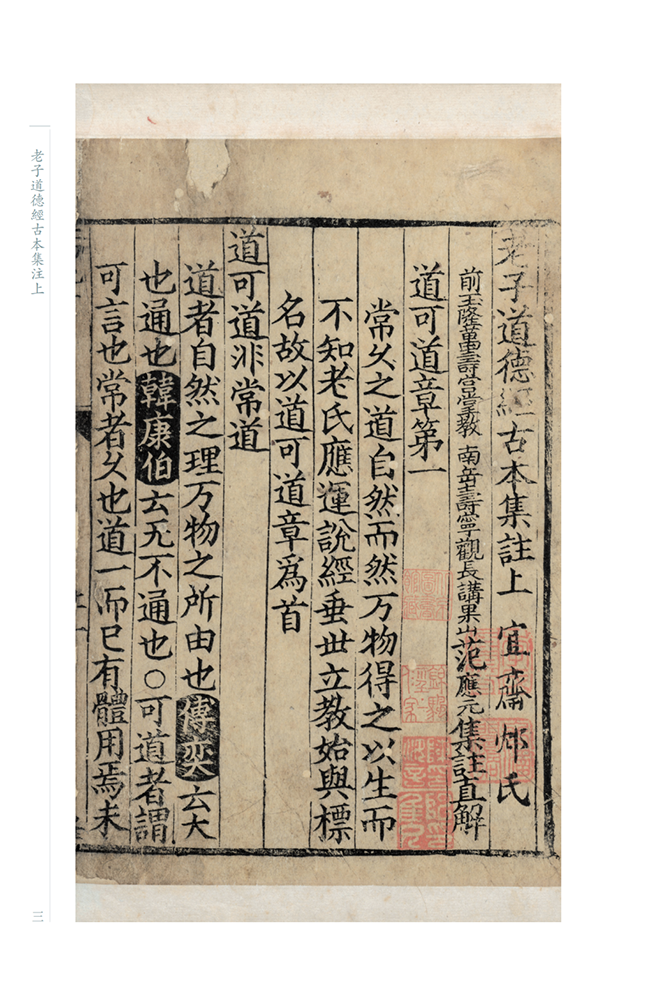 老子道德經古本集註上　宜齋邲氏
前玉隆萬壽宮掌教　南岳壽寧觀長講果山范應元集註直解
道可道章第一
常久之道自然而然万物得之以生而
不知老氏應運說經垂世立教始與標
名故以道可道章爲首
道可道非常道
道者自然之理万物之所由也傅奕云大
也通也韓康伯云无不通也○可道者謂
可言也常者久也道一而已有體用焉未
老子道德經古本集注上
三